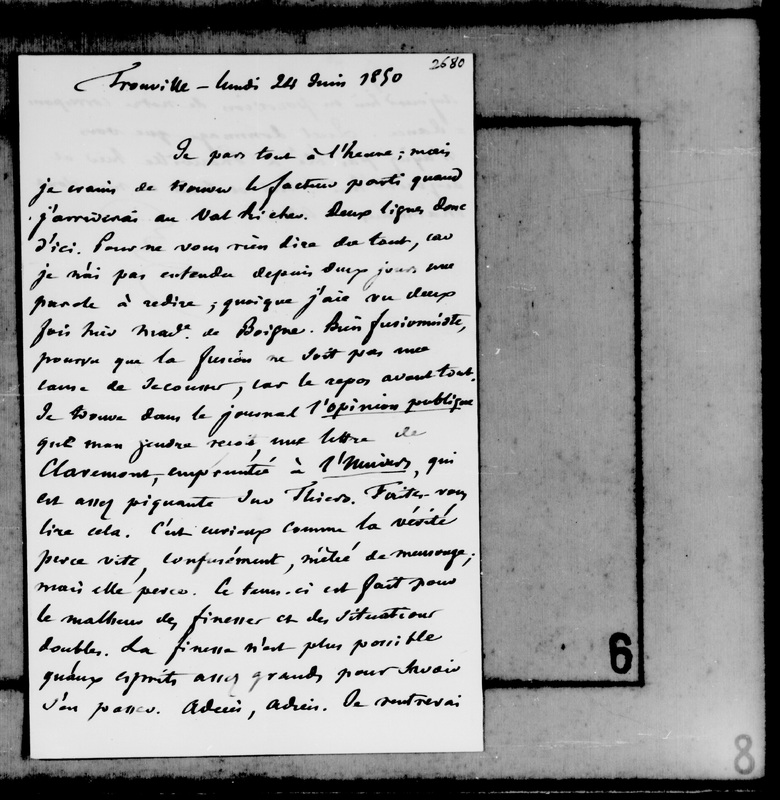 2680
Trouville - lundi 24 Juin 1850
Je pars tout à l'heure ; mais
je crains de trouver le facteur parti quand
j'arriverai au Val Richer. Deux lignes donc
d'ici. Pour ne vous rien dire du tout, car
je n'ai pas entendu depuis deux jours une
parole à redire ; quoique j'aie vu deux
fois hier Made de Boigne. Bien fusionniste,
pourvu que la fusion ne soit pas une
cause de secousses, car le repos avant tout.
Je trouve dans le journal l'opinion publique
que mon gendre reçoit une lettre de
Claremont, empruntée à l'Univers, qui
est assez piquante sur Thiers. Faites-vous
lire cela. C'est curieux comme la vérité
perce vite, confusément, mêlée de mensonge ;
mais elle perce. Ce tems-ci est fait pour
le malheur des finesses et des situations
doubles. La finesse n'est plus possible
qu'aux esprits assez grands pour savoir
s'en passer. Adieu, Adieu. Je rentrerai
6
8